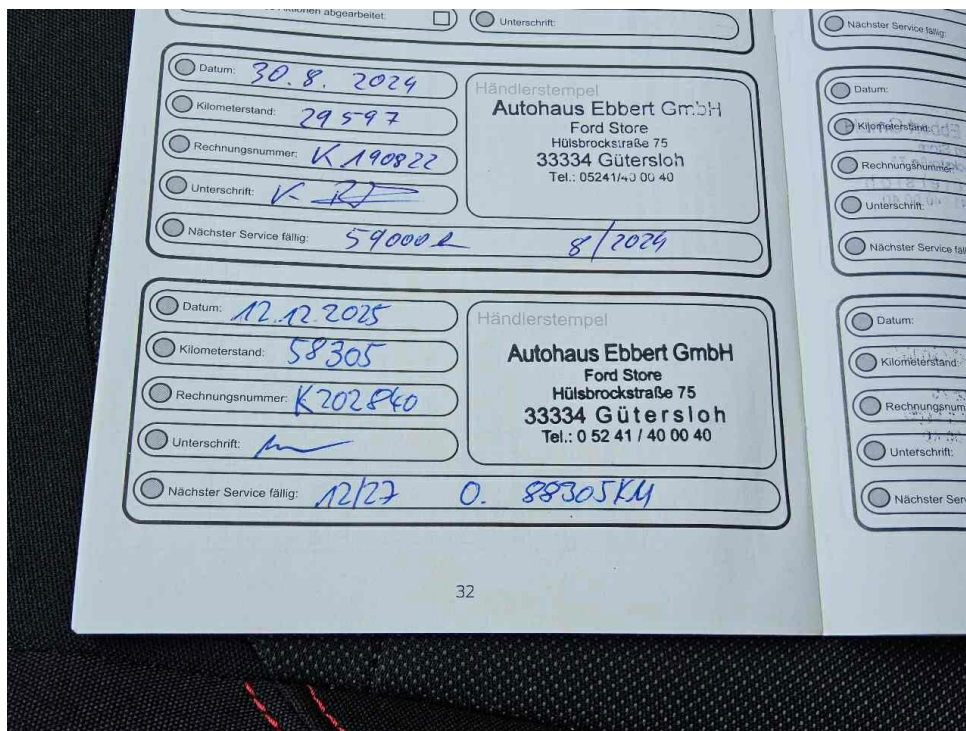 Aktionen abgearbeitet:
Unterschrift:
Datum: 30.8.2024
Kilometerstand: 29597
Rechnungsnummer: K 190822
Unterschrift:
Nächster Service fällig: 59000 8/2024
Händlerstempel
Autohaus Ebbert GmbH
Ford Store
Hülsbrockstraße 75
33334 Gütersloh
Tel.: 05241/40 00 40
Datum: 12.12.2025
Kilometerstand: 58305
Rechnungsnummer: K202840
Unterschrift:
Nächster Service fällig: 12/27 O. 88305KM
Händlerstempel
Autohaus Ebbert GmbH
Ford Store
Hülsbrockstraße 75
33334 Gütersloh
Tel.: 0 52 41 / 40 00 40
32
Nächster Service fällig:
Datum:
Kilometerstand:
Rechnungsnummer
Unterschrift:
Nächster Service
Datum:
Kilometerstand:
Rechnungsnum
Unterschrift:
Nächster Ser